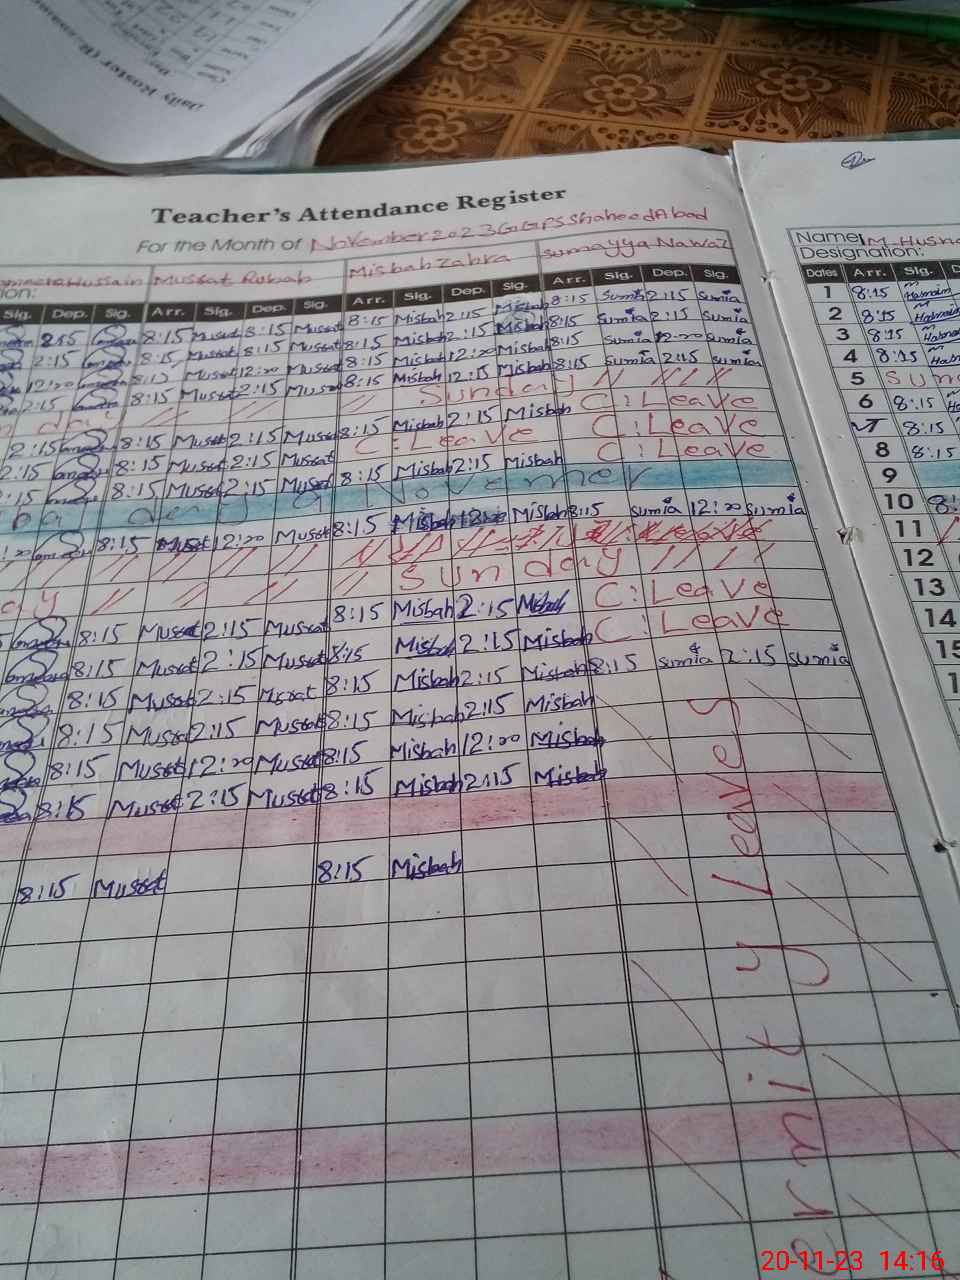 Daily Roster
Teacher's Attendance Register
For the Month of November 2023 GGPS Shaheed Abad
Hussain Mussat Rubab Misbah Zahra Sumayya Nawaz
Name M. Husn
Designation:
Sig. Dep. Sig. Arr. Sig. Dep. Sig. Arr. Sig. Dep. Sig. Arr. Sig. Dep. Sig.
Dates Arr. Sig. D
2:15 8:15 Mussat 8:15 Mussat 8:15 Misbah 2:15 Misbah 8:15 Sumia 2:15 Sumia
1 8:15
2:15 8:15 Mussat 8:15 Mussat 8:15 Misbah 2:15 Misbah 8:15 Sumia 2:15 Sumia
2 8:15
12:20 8:15 Mussat 12:20 Mussat 8:15 Misbah 12:20 Misbah 8:15 Sumia 12:20 Sumia
3 8:15
2:15 8:15 Mussat 2:15 Mussat 8:15 Misbah 12:15 Misbah 8:15 Sumia 2:15 Sumia
4 8:15
Sunday
5 Sun
2:15 8:15 Mussat 2:15 Mussat 8:15 Misbah 2:15 Misbah C:Leave
6 8:15
2:15 8:15 Mussat 2:15 Mussat C:Leave C:Leave
7 8:15
2:15 8:15 Mussat 2:15 Mussat 8:15 Misbah 2:15 Misbah C:Leave
8 8:15
9
8:15 Mussat 12:20 Mussat 8:15 Misbah 12:20 Misbah 8:15 Sumia 12:20 Sumia
10
11
Sunday
12
8:15 Mussat 2:15 Mussat 8:15 Misbah 2:15 Misbah C:Leave
13
8:15 Mussat 2:15 Mussat 8:15 Misbah 2:15 Misbah C:Leave
14
8:15 Mussat 2:15 Mussat 8:15 Misbah 2:15 Misbah 8:15 Sumia 2:15 Sumia
15
8:15 Mussat 2:15 Mussat 8:15 Misbah 2:15 Misbah
8:15 Mussat 12:20 Mussat 8:15 Misbah 12:20 Misbah
8:15 Mussat 2:15 Mussat 8:15 Misbah 2:15 Misbah
8:15 Mussat 8:15 Misbah
ermity Leaves
20-11-23 14:16